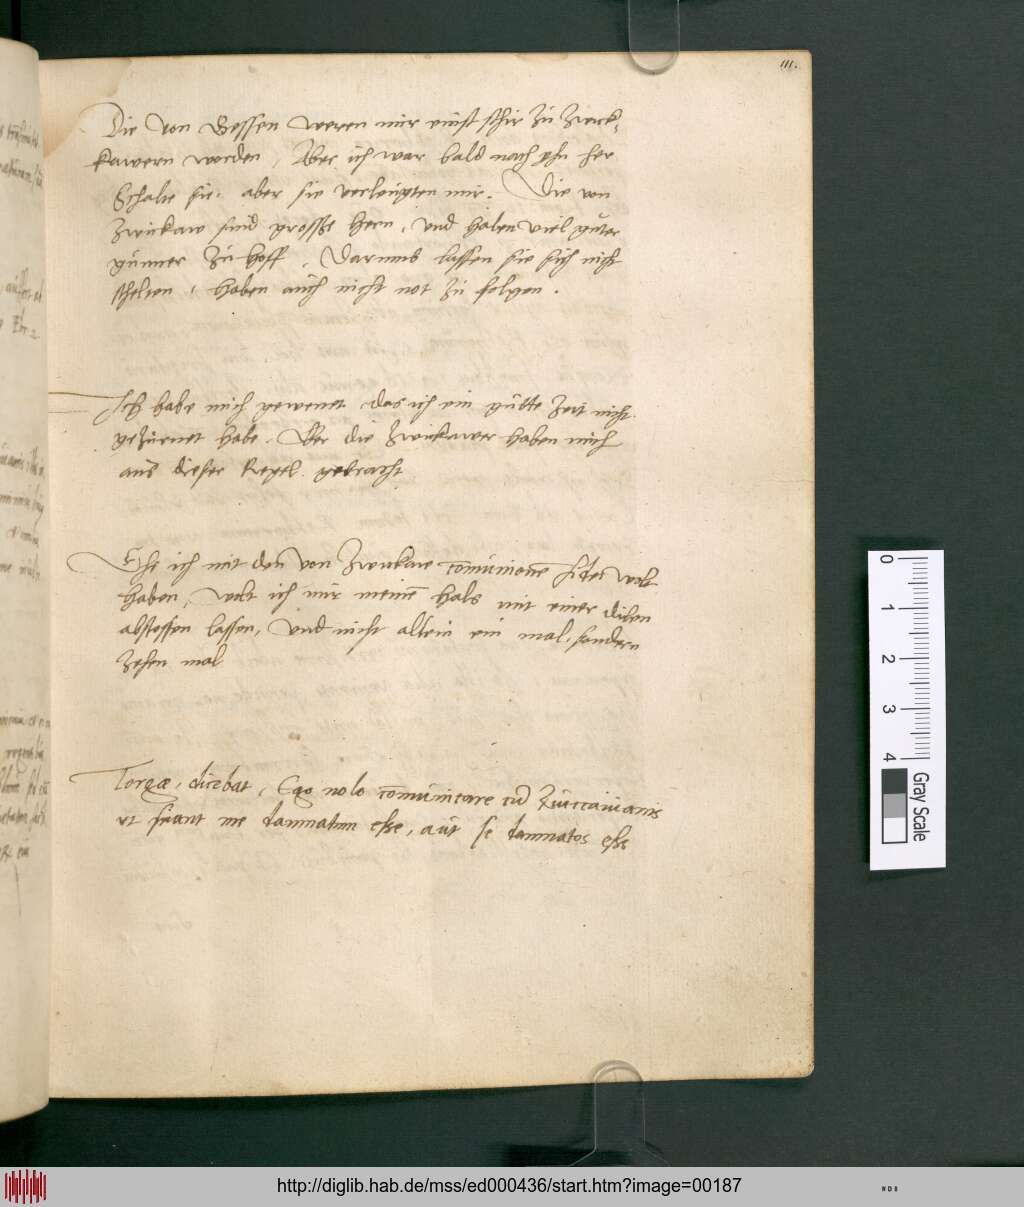 111.
Die von Hessen weren mir einst schir zu Zwick,
kawern worden, Aber ich war bald nach yhn her
Schalte sie, aber sie verleugten mir. Die von
Zwickaw sind grosße hern, und haben viel guter
gunner zu hoff, Darumb lassen sie sich nicht
schelten, haben auch nicht not zu folgen.
Ich habe mich gewenet das ich ein gutte Zeit nicht
gezurnet habe. Aber die Zwickawer haben mich
aus dieser Regel gebracht
Ehe ich mit den von Zwickaw com̄unionē wolt
haben, wolt ich mir meinē hals mit einer dilen
abstossen lassen, und nicht allein ein mal, sondern
zehen mal
Torgæ, dicebat, Ego nolo com̄unicare cū Zuiccauianis
ut sciant me damnatum esse, aut se damnatos esse
0 1 2 3 4
Gray Scale
http://diglib.hab.de/mss/ed000436/start.htm?image=00187
WDB